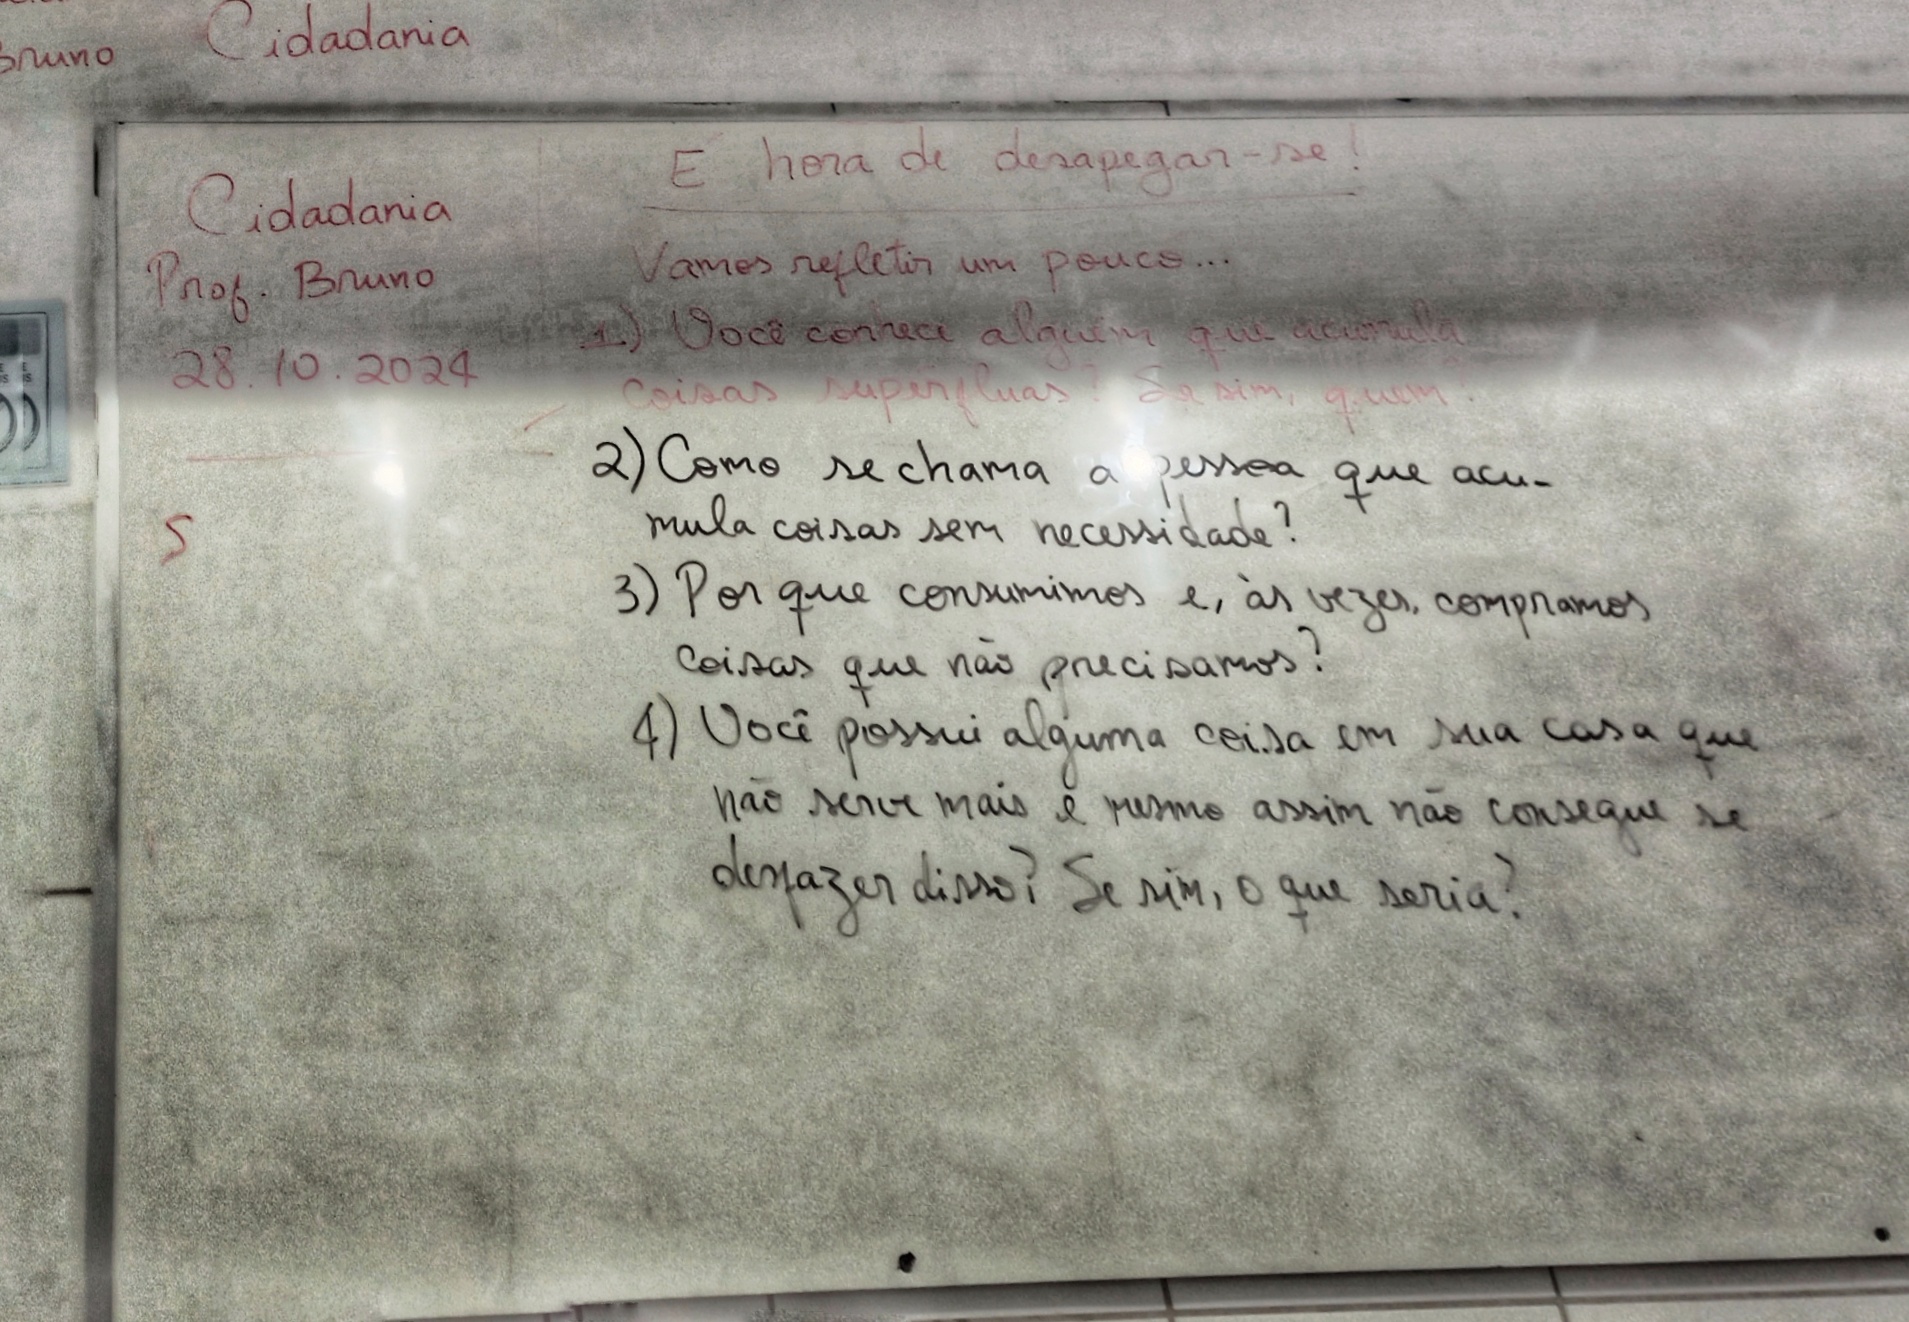 Bruno
Cidadania
Cidadania
Prof. Bruno
28.10.2024
S
E hora de desapegar-se!
Vamos refletir um pouco...
1.) Você conhece alguém que acumula
coisas superfluas? Se sim, quem?
2) Como se chama a pessoa que acu-
mula coisas sem necessidade?
3) Por que consumimos e, às vezes, compramos
coisas que não precisamos?
4) Você possui alguma coisa em sua casa que
não serve mais e mesmo assim não consegue se
desfazer disso? Se sim, o que seria?